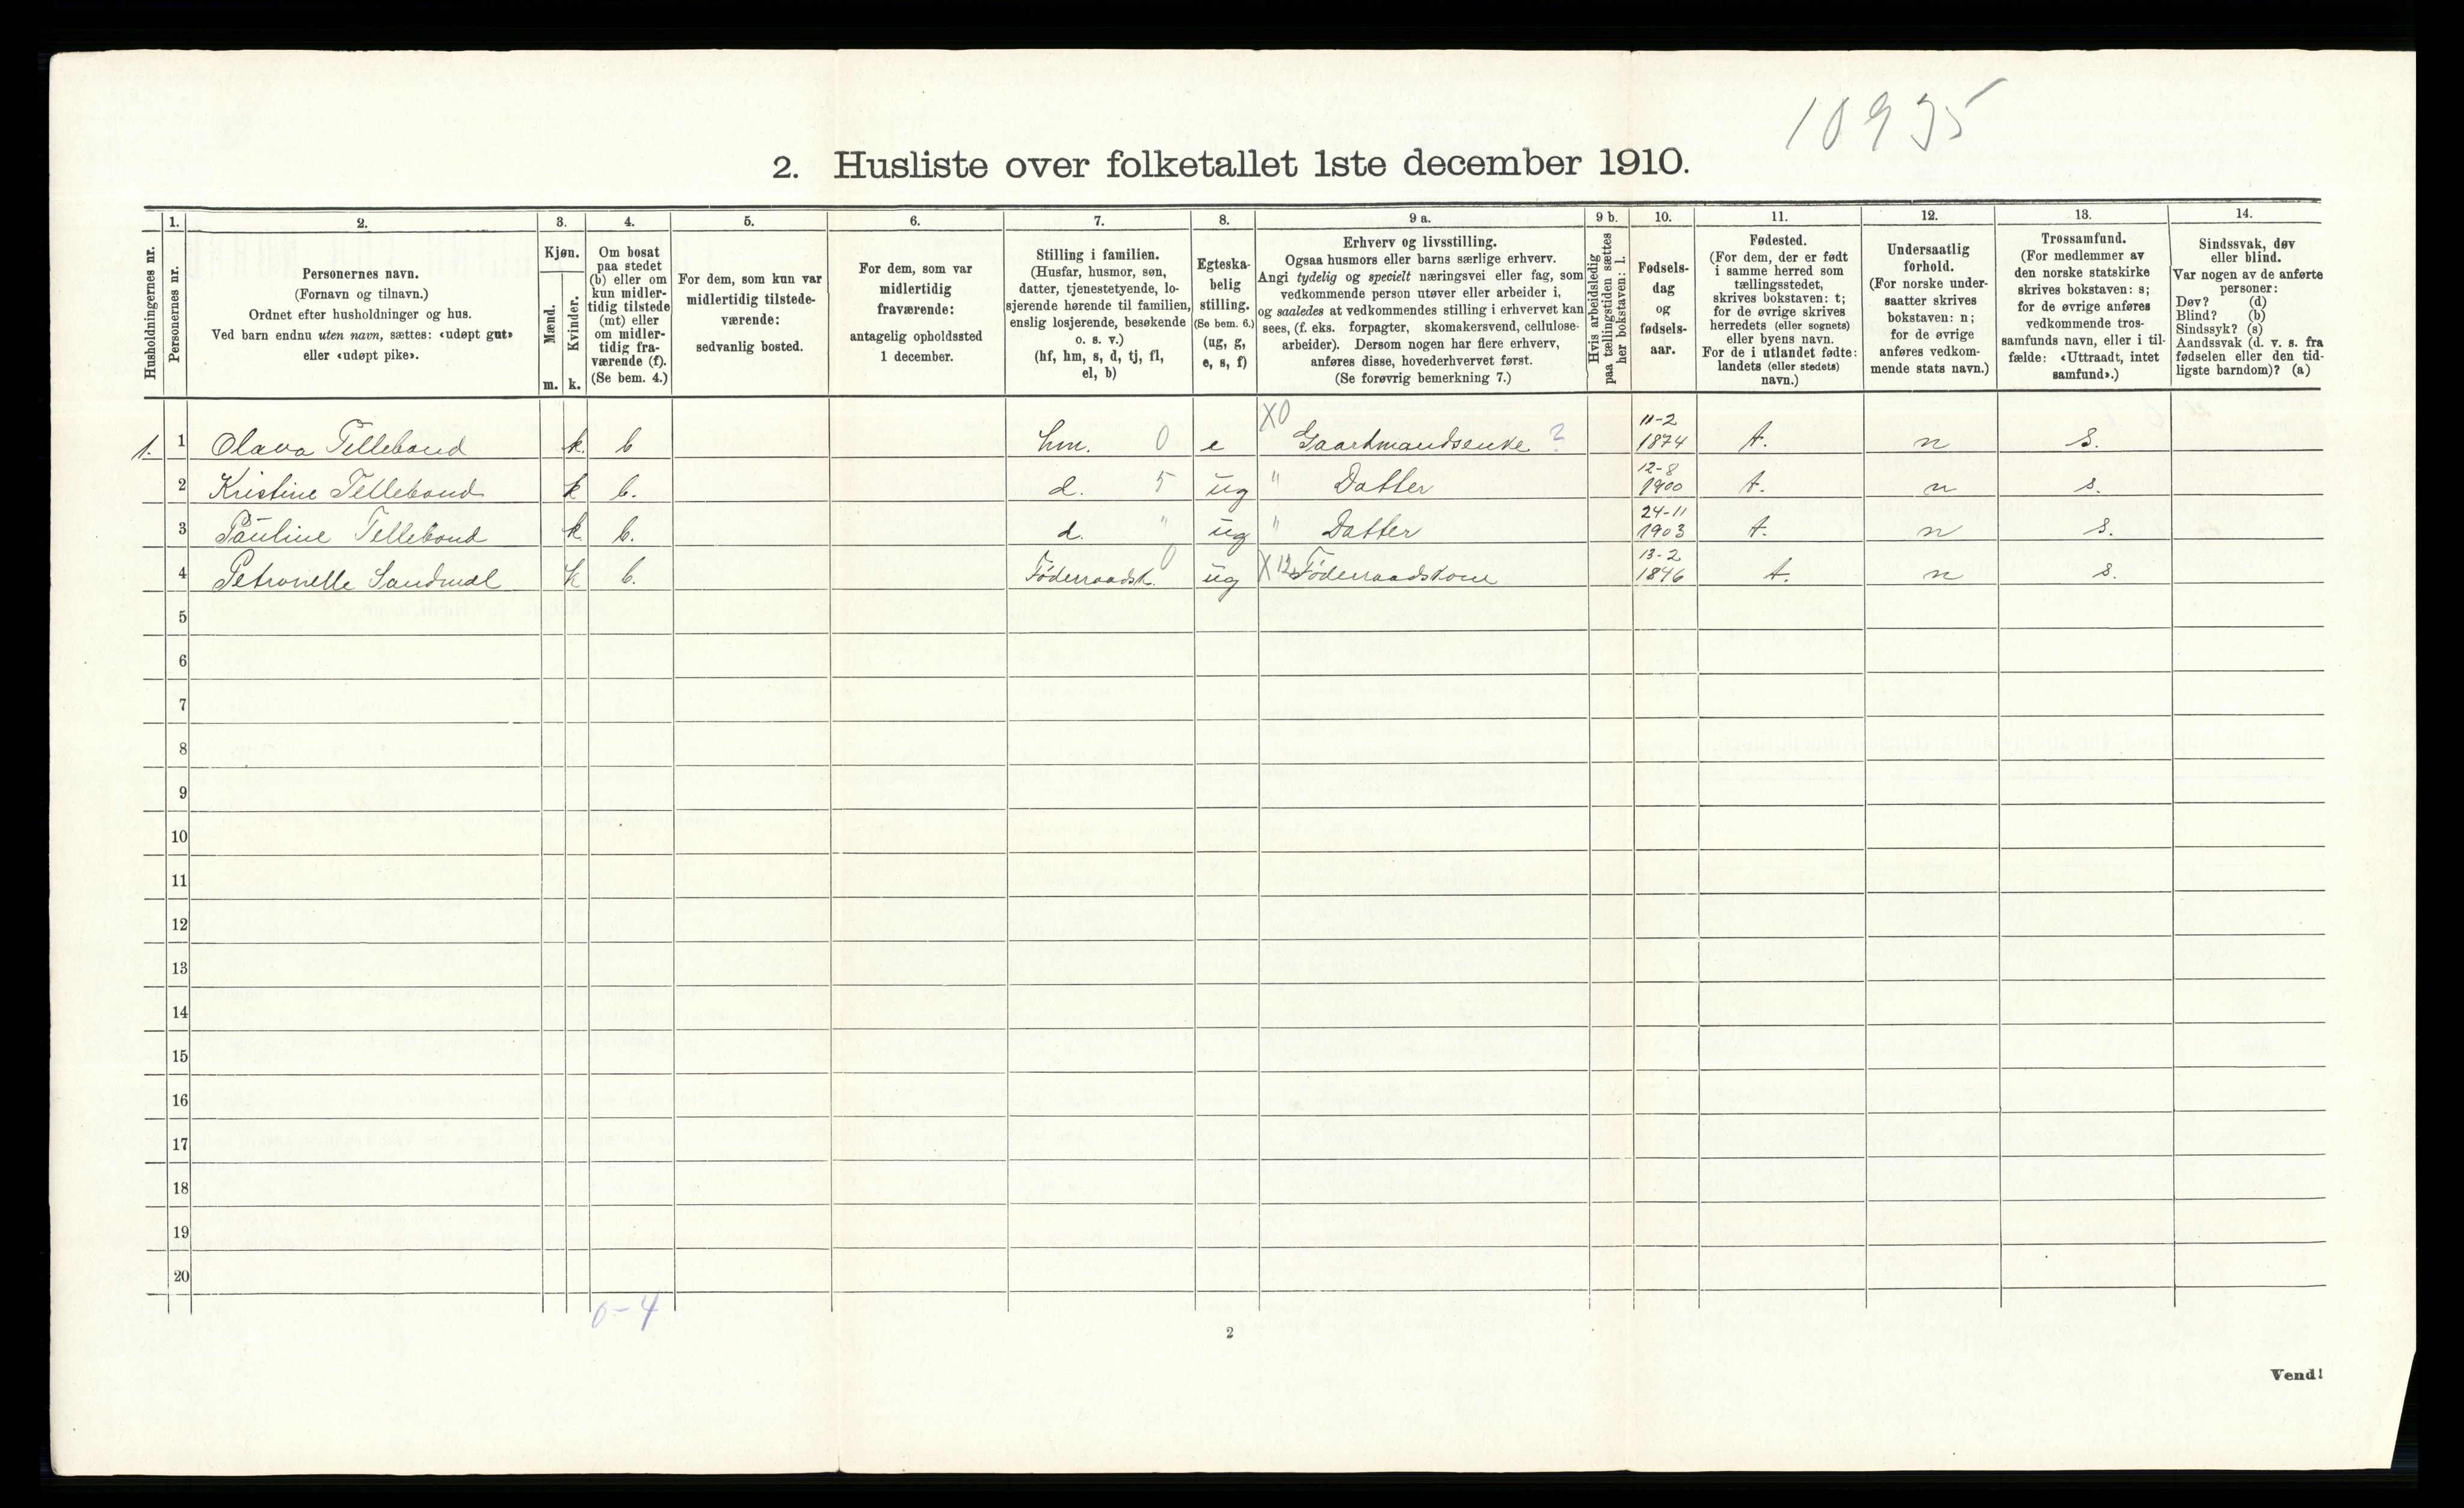 10995
2. Husliste over folketallet 1ste december 1910.
Husholdningernes nr.
1.
Personernes nr.
2.
Personernes navn.
(Fornavn og tilnavn.)
Ordnet efter husholdninger og hus.
Ved barn endnu uten navn, sættes: «udøpt gut»
eller «udøpt pike».
3.
Kjøn.
Mænd.
Kvinder.
m. k.
4.
Om bosat
paa stedet
(b) eller om
kun midler-
tidig tilstede
(mt) eller
om midler-
tidig fra-
værende (f).
(Se bem. 4.)
5.
For dem, som kun var
midlertidig tilstede-
værende:
sedvanlig bosted.
6.
For dem, som var
midlertidig
fraværende:
antagelig opholdssted
1 december.
7.
Stilling i familien.
(Husfar, husmor, søn,
datter, tjenestetyende, lo-
sjerende hørende til familien,
enslig losjerende, besøkende
o. s. v.)
(hf, hm, s, d, tj, fl,
el, b)
8.
Egteska-
belig
stilling.
(Se bem. 6.)
(ug, g,
e, s, f)
9 a.
Erhverv og livsstilling.
Ogsaa husmors eller barns særlige erhverv.
Angi tydelig og specielt næringsvei eller fag, som
vedkommende person utøver eller arbeider i,
og saaledes at vedkommendes stilling i erhvervet kan
sees, (f. eks. forpagter, skomakersvend, cellulose-
arbeider). Dersom nogen har flere erhverv,
anføres disse, hovederhvervet først.
(Se forøvrig bemerkning 7.)
9 b.
Hvis arbeidsledig
paa tællingstiden sættes
her bokstaven: l.
10.
Fødsels-
dag
og
fødsels-
aar.
11.
Fødested.
(For dem, der er født
i samme herred som
tællingsstedet,
skrives bokstaven: t;
for de øvrige skrives
herredets (eller sognets)
eller byens navn.
For de i utlandet fødte:
landets (eller stedets)
navn.)
12.
Undersaatlig
forhold.
(For norske under-
saatter skrives
bokstaven: n;
for de øvrige
anføres vedkom-
mende stats navn.)
13.
Trossamfund.
(For medlemmer av
den norske statskirke
skrives bokstaven: s;
for de øvrige anføres
vedkommende tros-
samfunds navn, eller i til-
fælde: «Uttraadt, intet
samfund».)
14.
Sindssvak, døv
eller blind.
Var nogen av de anførte
personer:
Døv? (d)
Blind? (b)
Sindssyk? (s)
Aandssvak (d. v. s. fra
fødselen eller den tid-
ligste barndom)? (a)
1. 1 Olava Tellebond k. b hm. 0 e X0 Gaardmandsenke ? 11-2 1874 t. n s.
2 Kristine Tellebond k b. d. 5 ug " Datter 12-8 1900 t. n s.
3 Pauline Tellebond k. b. d. " ug " Datter 24-11 1903 t. n s.
4 Petronelle Sandmæl k b. Föderraadsk. 0 ug X12 Föderraadskone 13-2 1846 t. n s.
5
6
7
8
9
10
11
12
13
14
15
16
17
18
19
20
0-4
2
Vend!